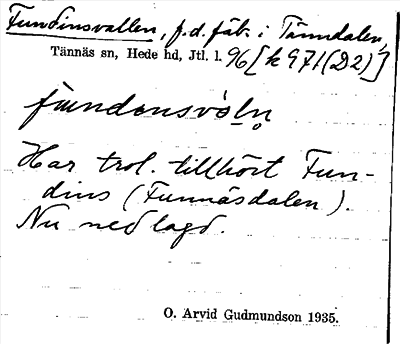 Fundinsvallen, f.d. fäb. i Tänndalen,
Tännäs sn, Hede hd, Jtl. l. 96 [k 971 (D2)]
fundensvöln
Har trol. tillhört Fun-
dins (Funnäsdalen).
Nu nedlagd.
O. Arvid Gudmundson 1935.